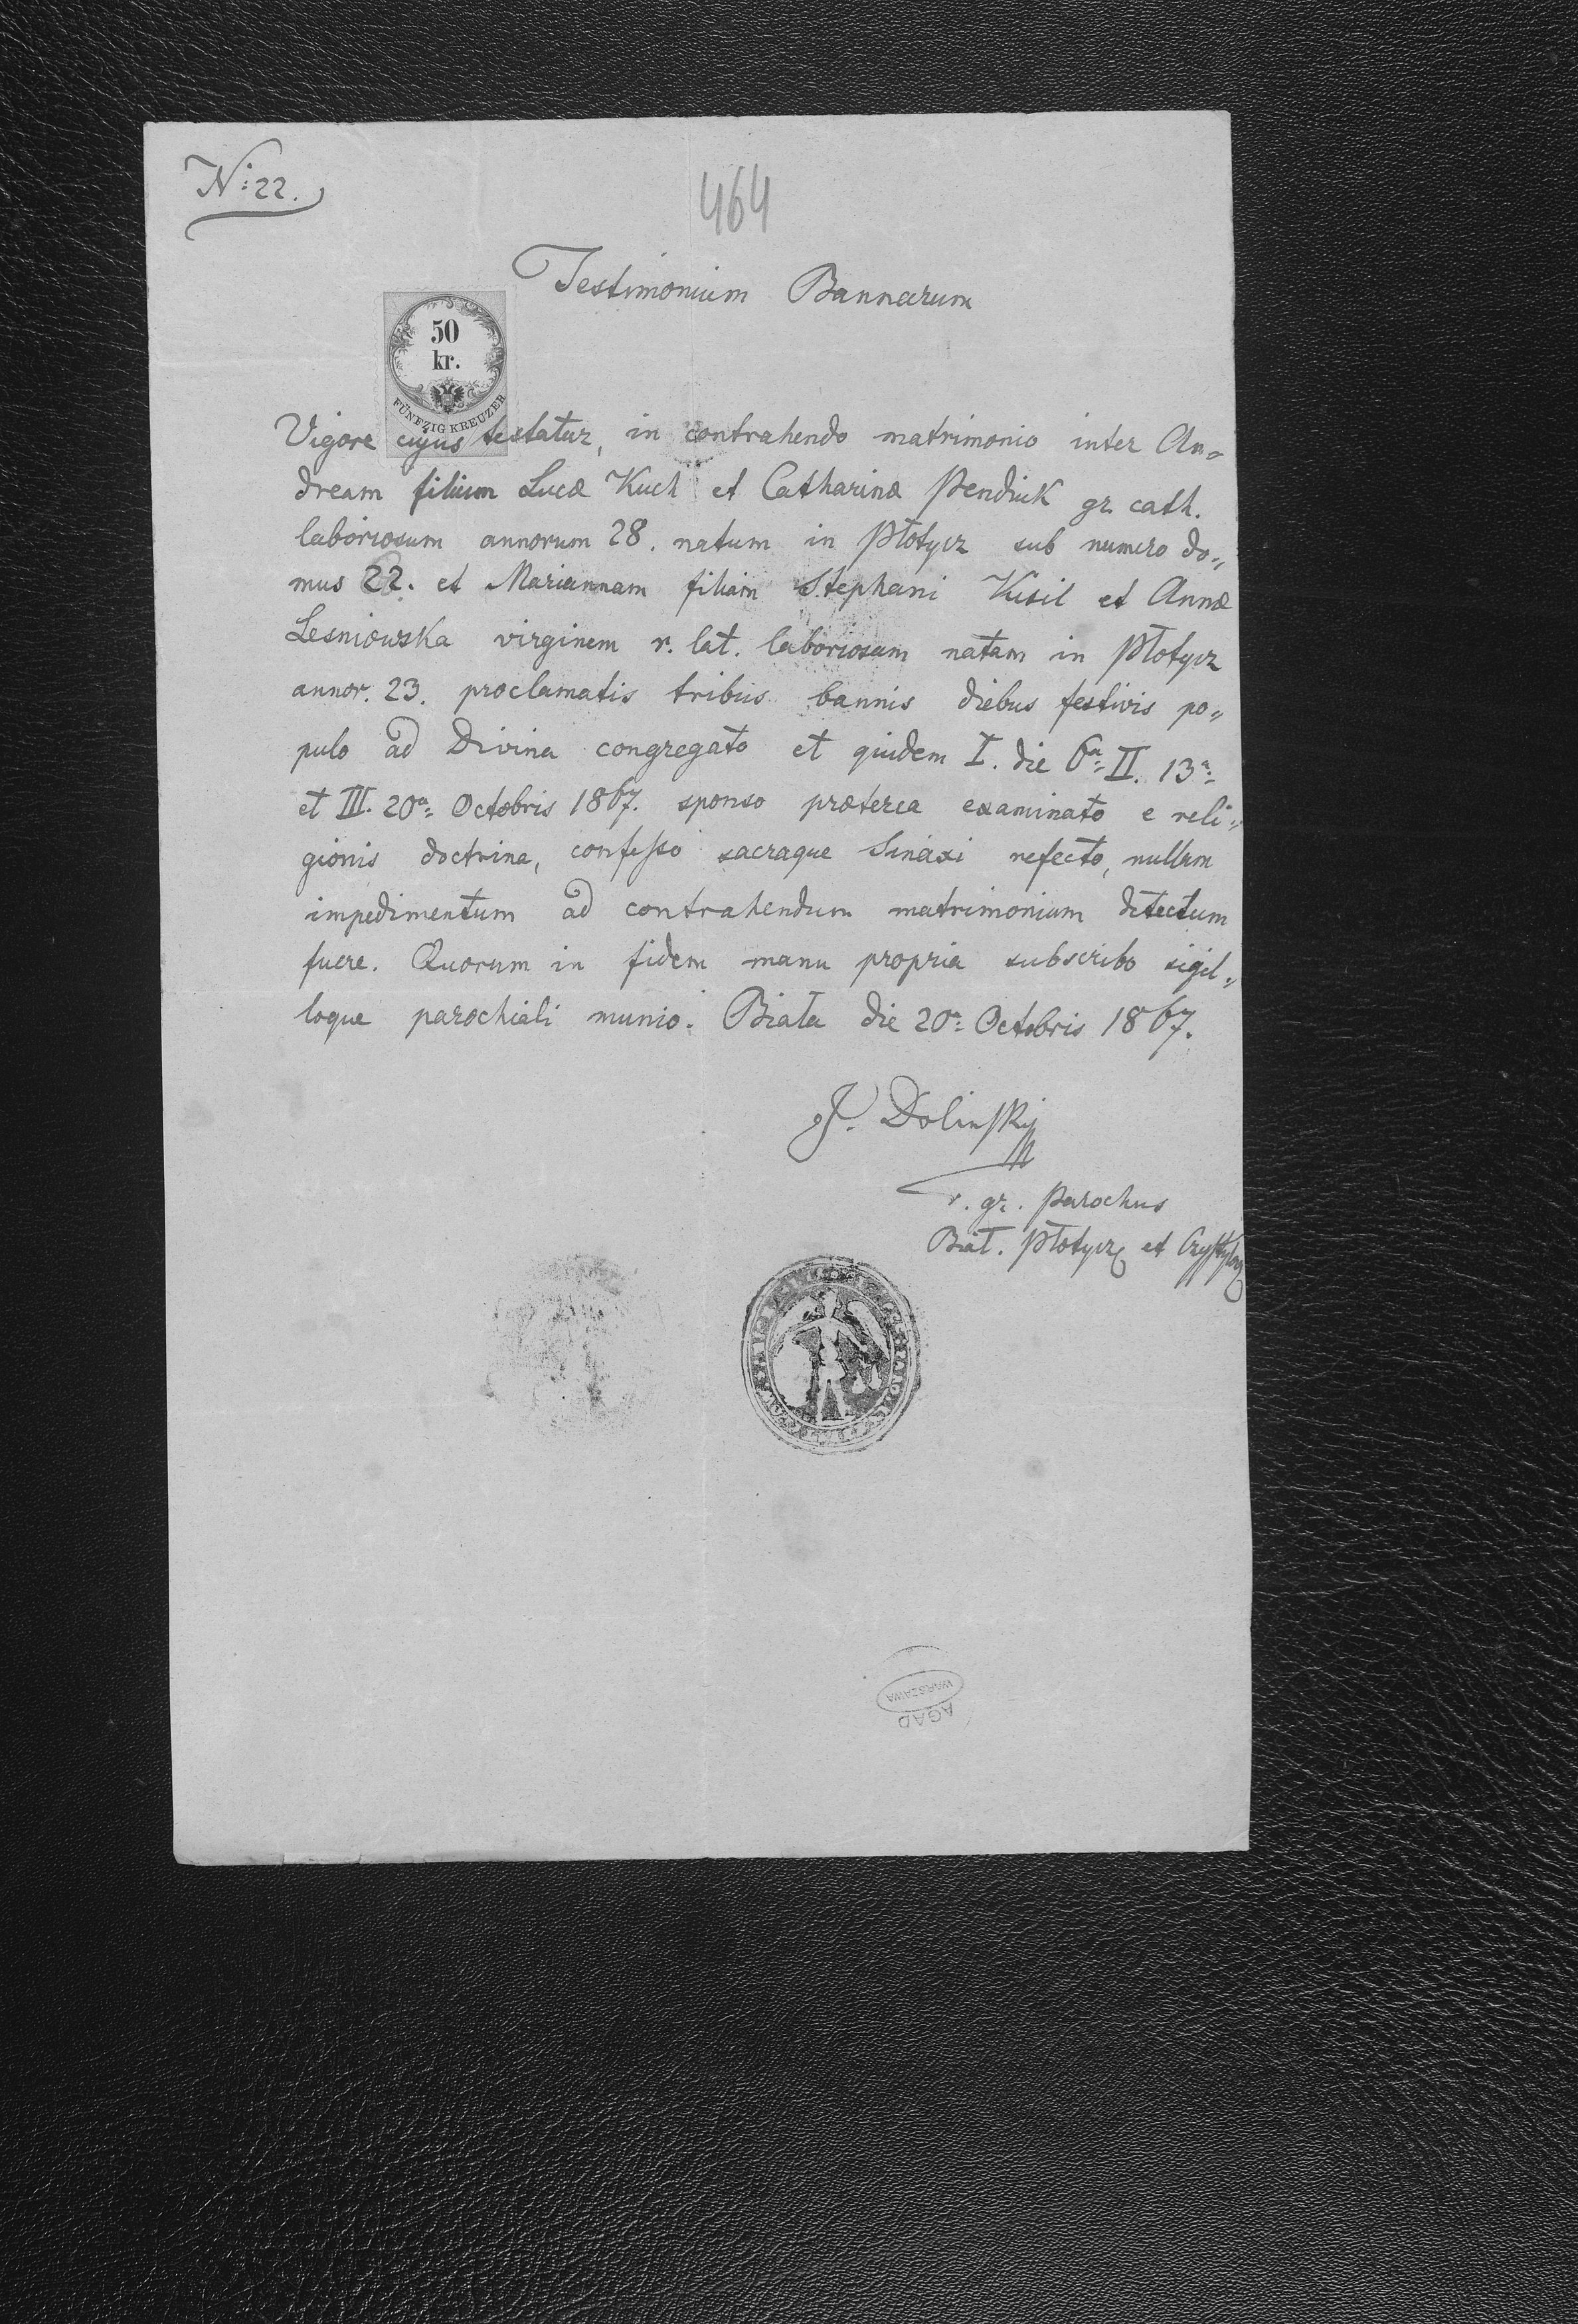 N: 22.
464
Testimonium Bannarum
50
kr.
FÜNFZIG KREUZER
Vigore cujus testatur, in contrahendo matrimonio inter An=
dream filium Lucæ Kuch et Catharinæ Pendiuk gr. cath.
laboriosum annorum 28. natum in Płotycz sub numero do=
mus 22. et Mariannam filiam Stephani Kusil et Annæ
Lesniowska virginem r. lat. laboriosam natam in Płotycz
annor. 23. proclamatis tribus bannis diebus festivis po=
pulo ad Divina congregato et quidem I. die 6a= II. 13a=
et III. 20a= Octobris 1867. sponso præterea examinato e reli=
gionis doctrina, confesso sacraque Sinaxi refecto, nullum
impedimentum ad contrahendum matrimonium detectum
fuere. Quorum in fidem manu propria subscribo sigil=
loque parochiali munio. Biała die 20a= Octobris 1867.
J. Dolinskij
r. gr. Parochus
Biał. Płotycz et
AGAD
WARSZAWA